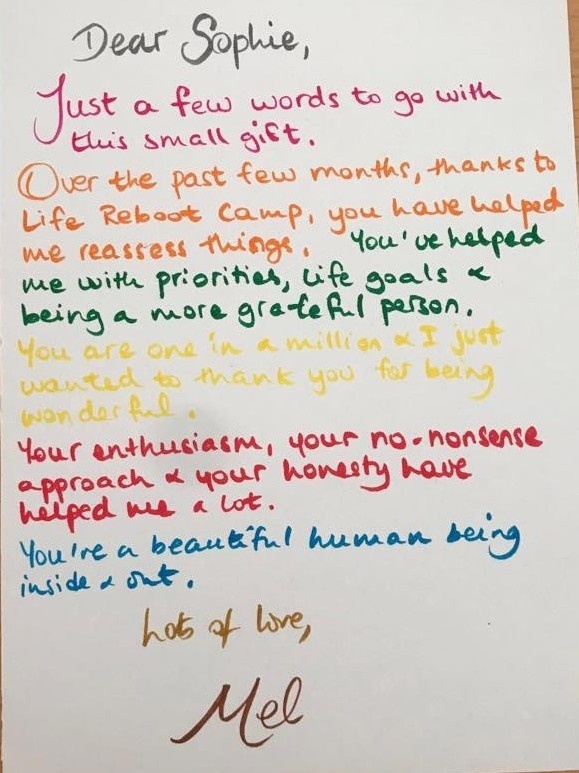 Dear Sophie,
Just a few words to go with
this small gift.
Over the past few months, thanks to
Life Reboot Camp, you have helped
me reassess things. You've helped
me with priorities, life goals &
being a more grateful person.
You are one in a million & I just
wanted to thank you for being
wonderful.
Your enthusiasm, your no-nonsense
approach & your honesty have
helped me a lot.
You're a beautiful human being
inside & out.
Lots of love,
Mel